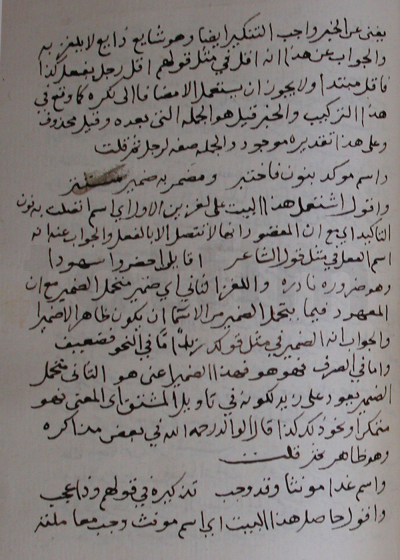 يغني عن الخبر واجب التنكير ايضا وهو شايع ذايع لا يلغز به
والجواب عن هذا انه اقل في مثل قولهم اقل رجل يفعل كذا
فاقل مبتدا ولا يجوز ان يستعمل الا مضافا الى نكرة كما وقع في
هذا التركيب والخبر قيل هو الجملة التي بعده وقيل محذوف
وعلى هذا تقديره موجود والجملة صفة لرجل ثم قلت
واسم موكد بنون فاختبر ومضمر به ضمير مستتر
واقول اشتمل هذا البيت على لغزين الاول اي اسم اتصلت به نون
التاكيد اي مع ان المعهود انها لا تتصل الا بالفعل والجواب عنه انه
اسم الفاعل في مثل قول الشاعر اقايلن احضروا الشهودا
وهو ضرورة نادرة واللغز الثاني اي ضمير متحمل الضمير مع ان
المعهود فيما يتحمل الضمير من الاسما ان يكون ظاهرا لا ضميرا
والجواب انه الضمير في مثل قولك زيد اما في النحو فضعيف
واما في الصرف فهو هو فهذا الضمير اعني هو الثاني متحمل
الضمير يعود على زيد لكونه في تاويل المشتق اي المعنى فهو
متمكن او نحو ذلك كذا قال الوالد رحمه الله في بعض مذاكره
وهو ظاهر ثم قلت
واسم غدا مونثا وقد وجب تذكيره في قولهم وذا عجب
واقول حاصل هذا البيت اي اسم مونث وجب معاملته